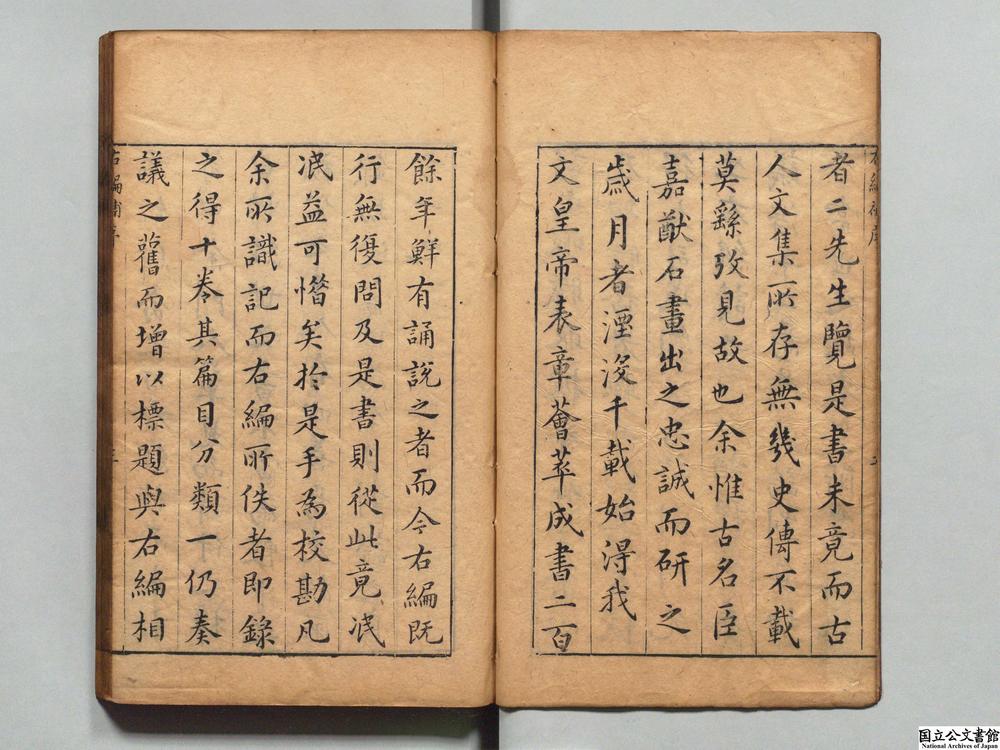 者二先生覽是書未竟而古
人文集所存無幾史傳不載
莫繇攷見故也余惟古名臣
嘉猷石畫出之忠誠而研之
歲月者湮沒千載始得我
文皇帝表章薈萃成書二百
餘年鮮有誦說之者而今右編既
行無復問及是書則從此竟泯
泯益可惜矣於是手為校勘凡
余所識記而右編所佚者即錄
之得十卷其篇目分類一仍奏
議之舊而增以標題與右編相
右編補序
国立公文書館
National Archives of Japan